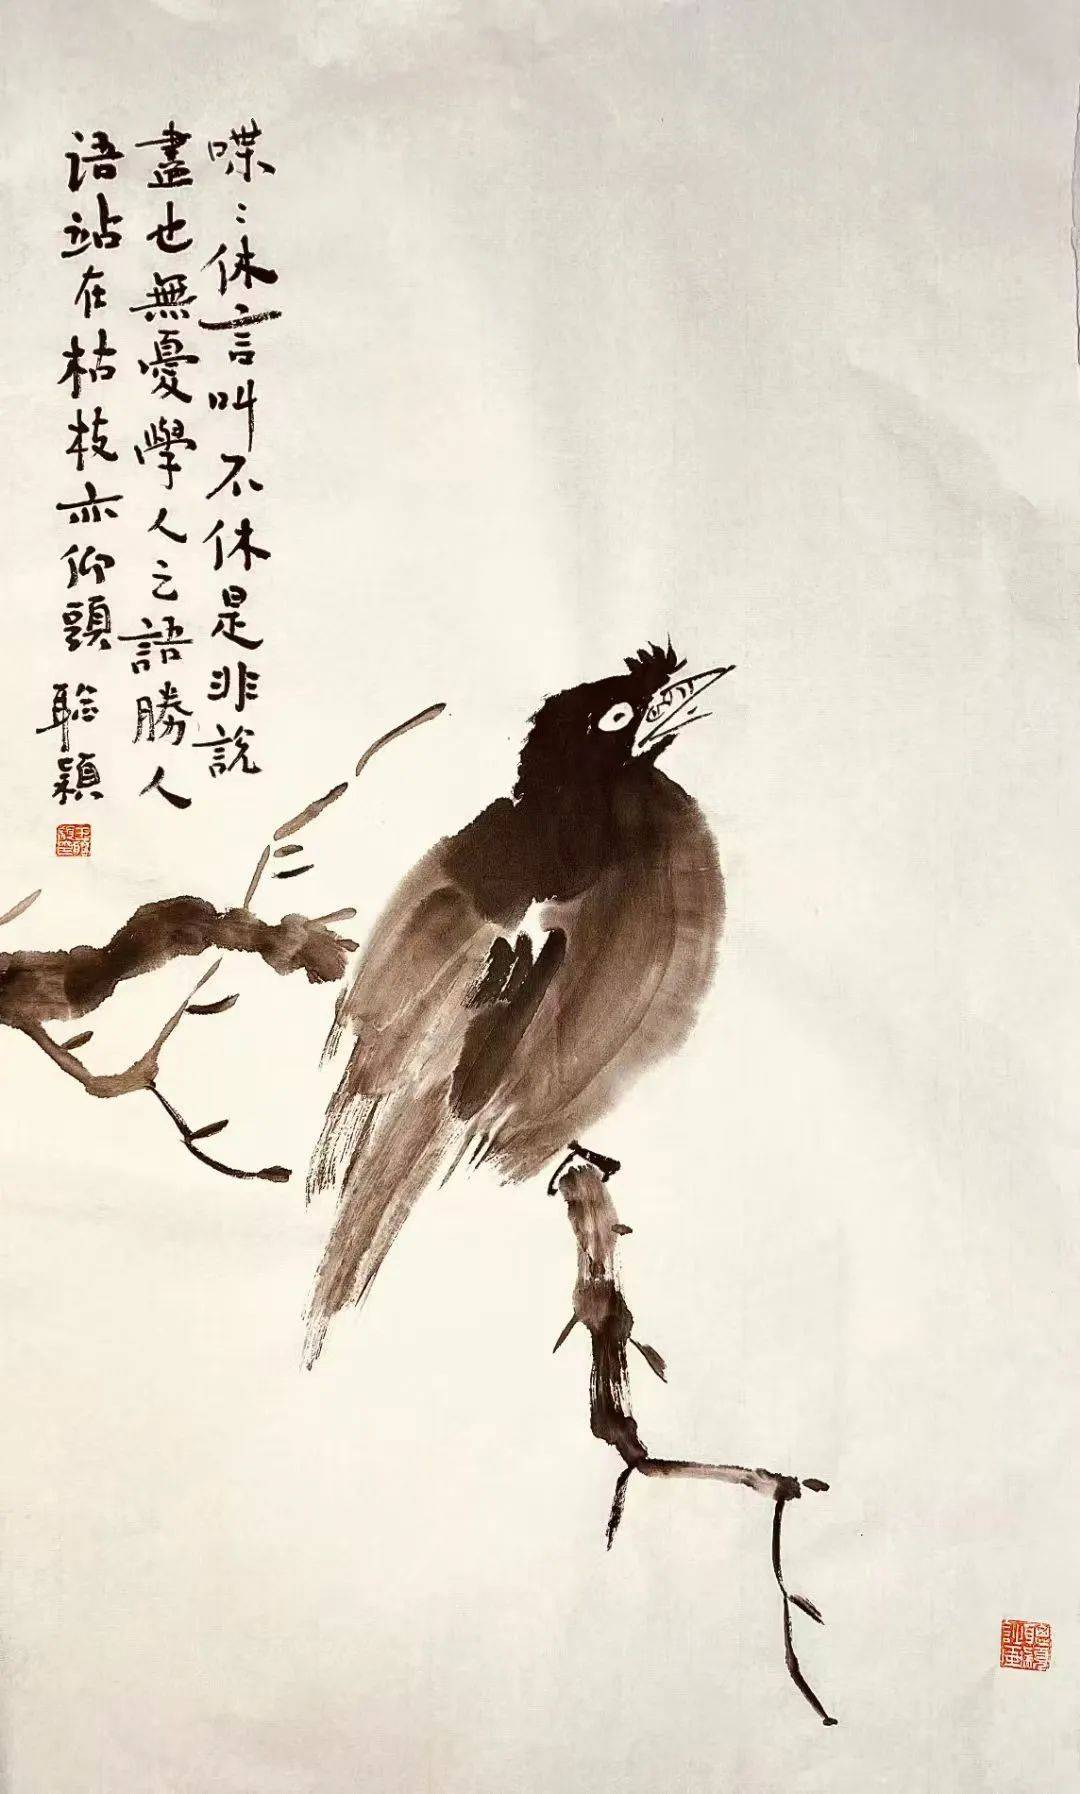 喋:休言叫不休是非說
盡也無憂學人之語勝人
语站在枯枝亦仰頭 聆穎